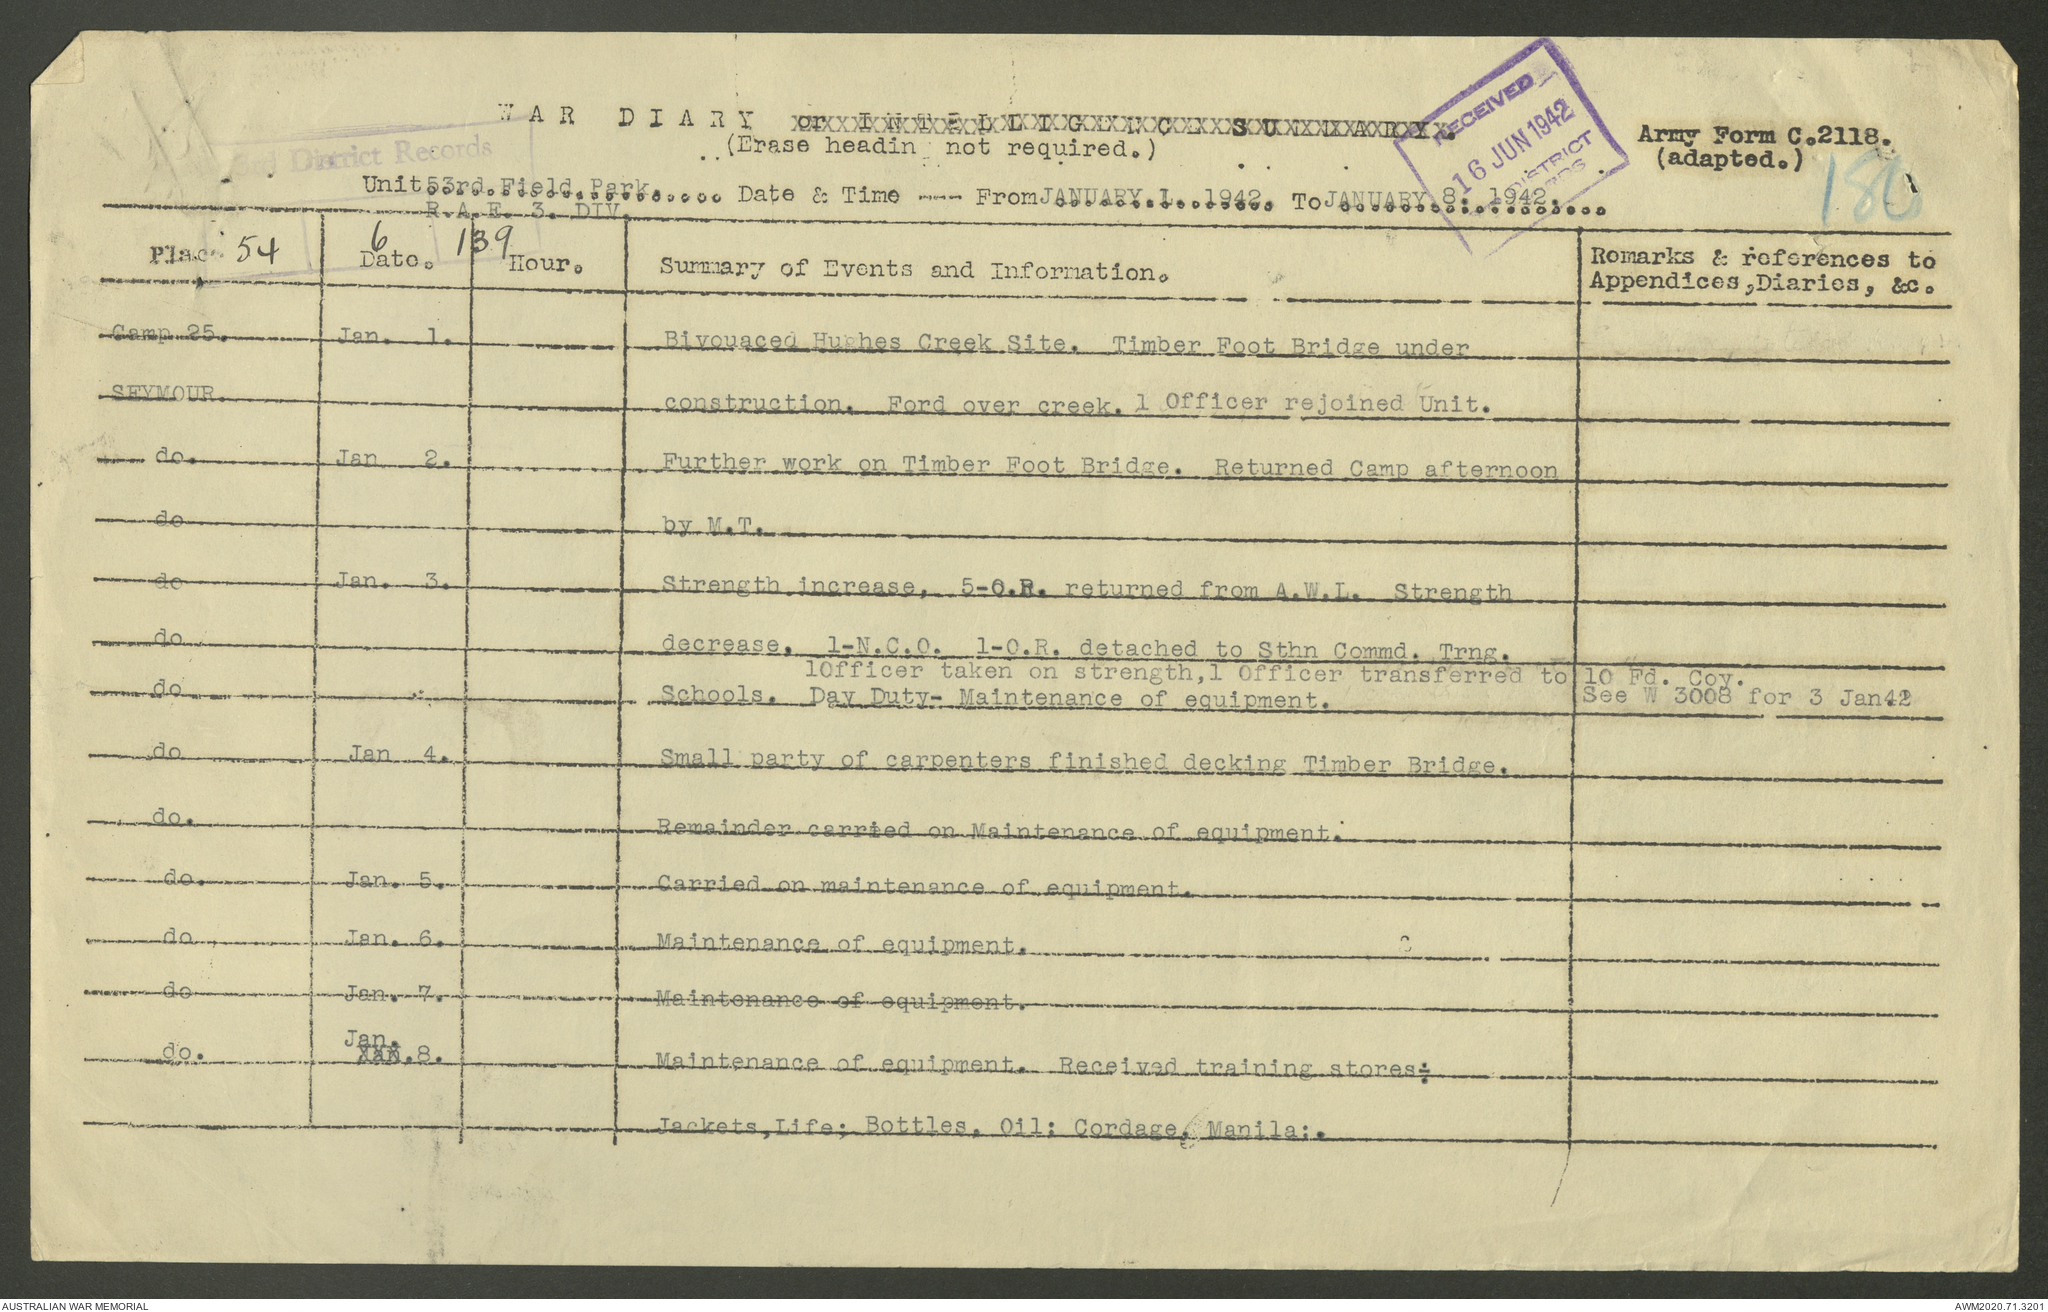 WAR DIARY or INTELLIGENCE SUMMARY.
(Erase headin not required.)
Army Form C.2118.
(adapted.)
RECEIVED
16 JUN 1942
DISTRICT
District Records
186
Unit 53rd. Field. Park. Date & Time --- From JANUARY 1. 1942. To JANUARY 8. 1942.
R.A.E. 3. DIV.
54 6 139
Place Date. Hour. Summary of Events and Information. Remarks & references to
Appendices, Diaries, &c.
Camp 25. Jan. 1. Bivouaced Hughes Creek Site. Timber Foot Bridge under
SEYMOUR. construction. Ford over creek. 1 Officer rejoined Unit.
do. Jan 2. Further work on Timber Foot Bridge. Returned Camp afternoon
do by M.T.
do Jan. 3. Strength increase, 5-O.R. returned from A.W.L. Strength
do decrease, 1-N.C.O. 1-O.R. detached to Sthn Commd. Trng.
1Officer taken on strength,1 Officer transferred to 10 Fd. Coy.
do Schools. Day Duty- Maintenance of equipment. See W 3008 for 3 Jan42
do Jan 4. Small party of carpenters finished decking Timber Bridge.
do. Remainder carried on Maintenance of equipment.
do. Jan. 5. Carried on maintenance of equipment.
do Jan. 6. Maintenance of equipment.
do Jan. 7. Maintenance of equipment.
Jan.
do. XXX.8. Maintenance of equipment. Received training stores:
Jackets,Life; Bottles, Oil; Cordage, Manila:.
AUSTRALIAN WAR MEMORIAL
AWM2020.71.3201